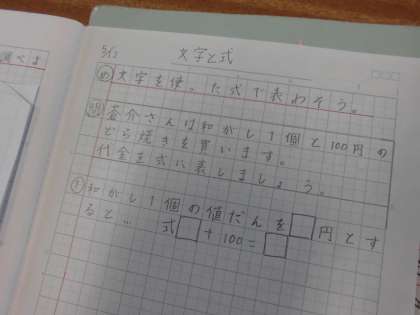 調べよ
5/13 文字と式
め 文字を使った式で表わそう。
問 蒼介さんは和がし1個と100円の
どら焼きを買います。
代金を式に表しましょう。
和がし1個の値だんを□円とす
ると… 式□+100=□